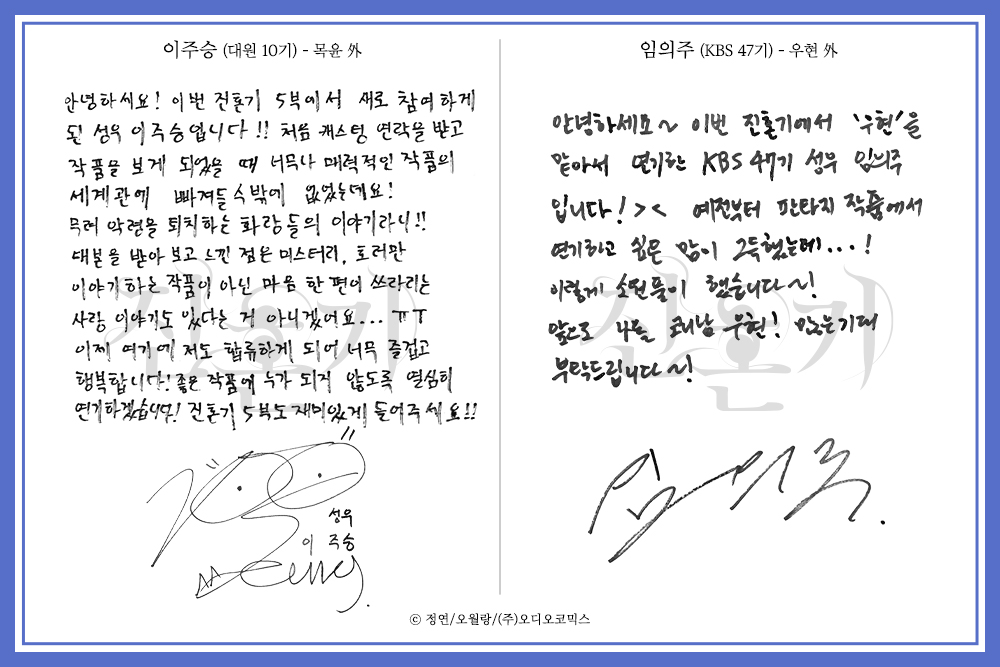 이주승 (대원 10기) - 목윤 外
안녕하세요! 이번 진혼기 5부에서 새로 참여하게
된 성우 이주승입니다!! 처음 캐스팅 연락을 받고
작품을 보게 되었을 때 너무나 매력적인 작품의
세계관에 빠져들 수밖에 없었는데요!
무려 악령을 퇴치하는 화랑들의 이야기라니!!
대본을 받아 보고 느낀 점은 미스터리, 호러만
이야기하는 작품이 아닌 마음 한 편이 쓰라리는
사람 이야기도 있다는 거 아니겠어요... ㅠㅜ
이제 여기에 저도 합류하게 되어 너무 즐겁고
행복합니다! 좋은 작품에 누가 되지 않도록 열심히
연기하겠습니다! 진혼기 5부도 재미있게 들어주세요!!
성우
이주승
임의주 (KBS 47기) - 우현 外
안녕하세요~ 이번 진혼기에서 '우현'을
맡아서 연기하는 KBS 47기 성우 임의주
입니다! >< 예전부터 판타지 작품에서
연기하고 싶은 맘이 그득했는데...!
이렇게 소원풀이 했습니다~!
앞으로 나올 코러남 우현! 많은기대
부탁드립니다~!
임의주.
진혼기
진혼기
© 정연/오월랑/(주)오디오코믹스